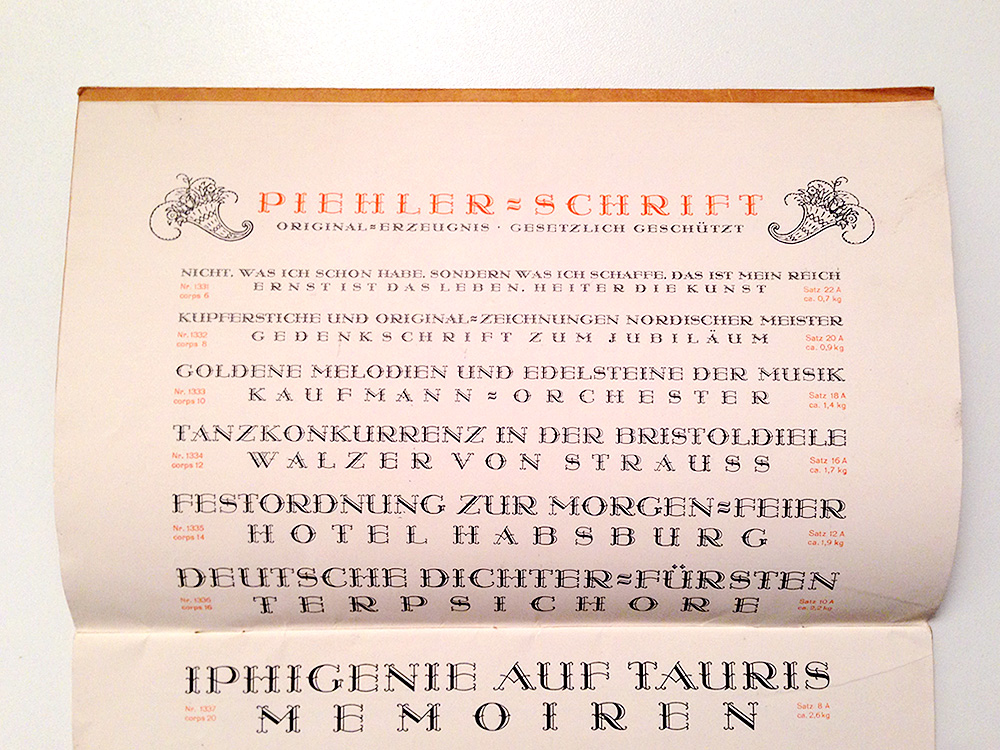 PIEHLER=SCHRIFT
ORIGINAL=ERZEUGNIS · GESETZLICH GESCHÜTZT
NICHT, WAS ICH SCHON HABE, SONDERN WAS ICH SCHAFFE, DAS IST MEIN REICH
Nr. 1331 ERNST IST DAS LEBEN, HEITER DIE KUNST Satz 22 A
corps 6 ca. 0,7 kg
KUPFERSTICHE UND ORIGINAL=ZEICHNUNGEN NORDISCHER MEISTER
Nr. 1332 GEDENKSCHRIFT ZUM JUBILÄUM Satz 20 A
corps 8 ca. 0,9 kg
GOLDENE MELODIEN UND EDELSTEINE DER MUSIK
Nr. 1333 KAUFMANN=ORCHESTER Satz 18 A
corps 10 ca. 1,4 kg
TANZKONKURRENZ IN DER BRISTOLDIELE
Nr. 1334 WALZER VON STRAUSS Satz 16 A
corps 12 ca. 1,7 kg
FESTORDNUNG ZUR MORGEN=FEIER
Nr. 1335 HOTEL HABSBURG Satz 12 A
corps 14 ca. 1,9 kg
DEUTSCHE DICHTER=FÜRSTEN
Nr. 1336 TERPSICHORE Satz 10 A
corps 16 ca. 2,2 kg
IPHIGENIE AUF TAURIS
Nr. 1337 MEMOIREN Satz 8 A
corps 20 ca. 2,6 kg